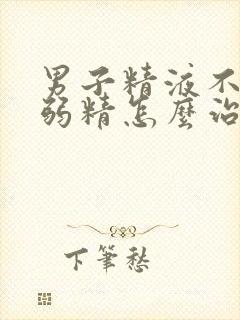 男子精液不
弱精怎麼治
下筆愁